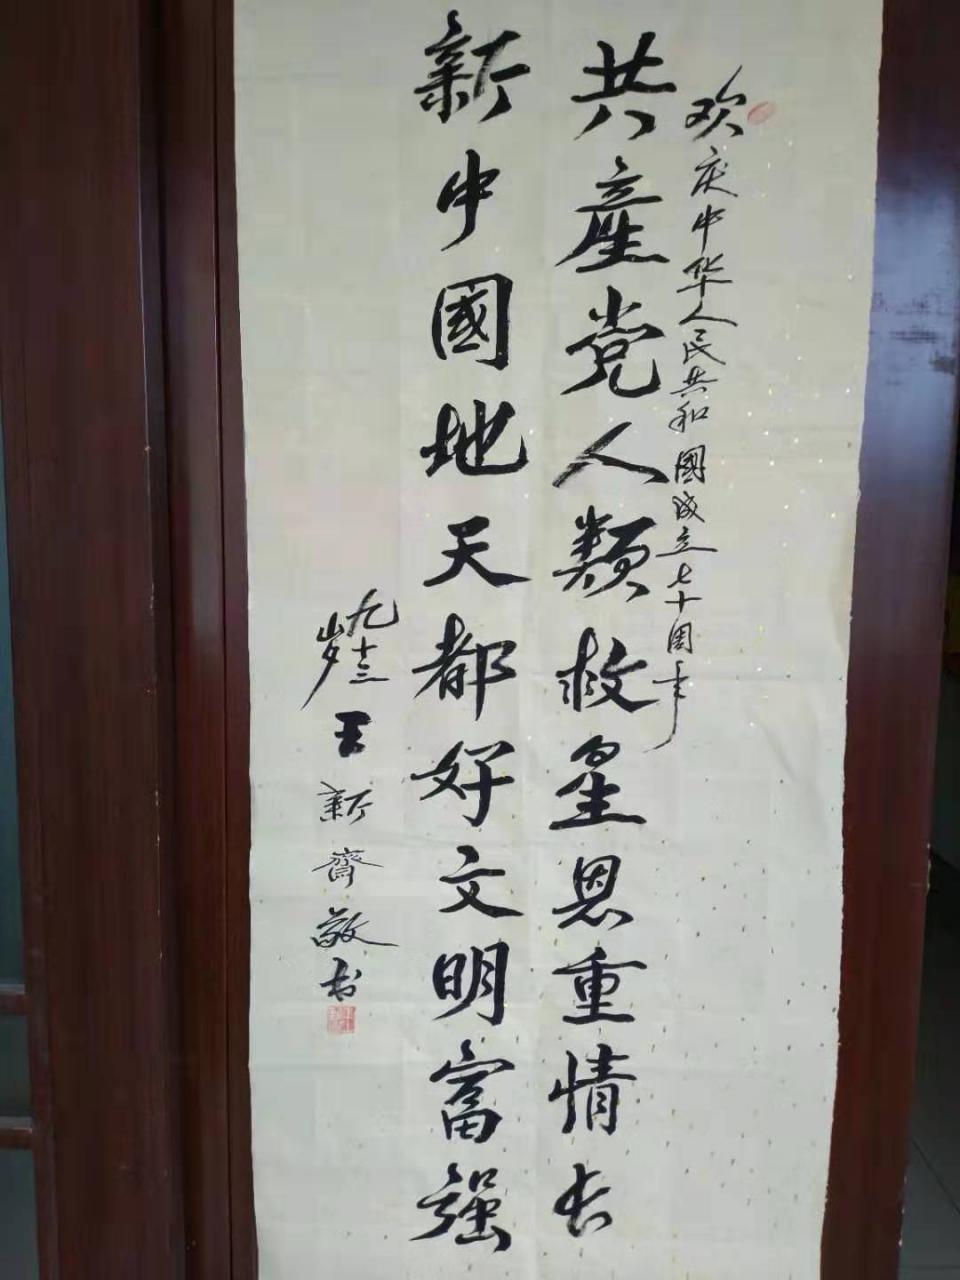 欢庆中华人民共和國成立七十周年
共產党人類救星恩重情长
新中國地天都好文明富强
九十三岁
王新齋敬书